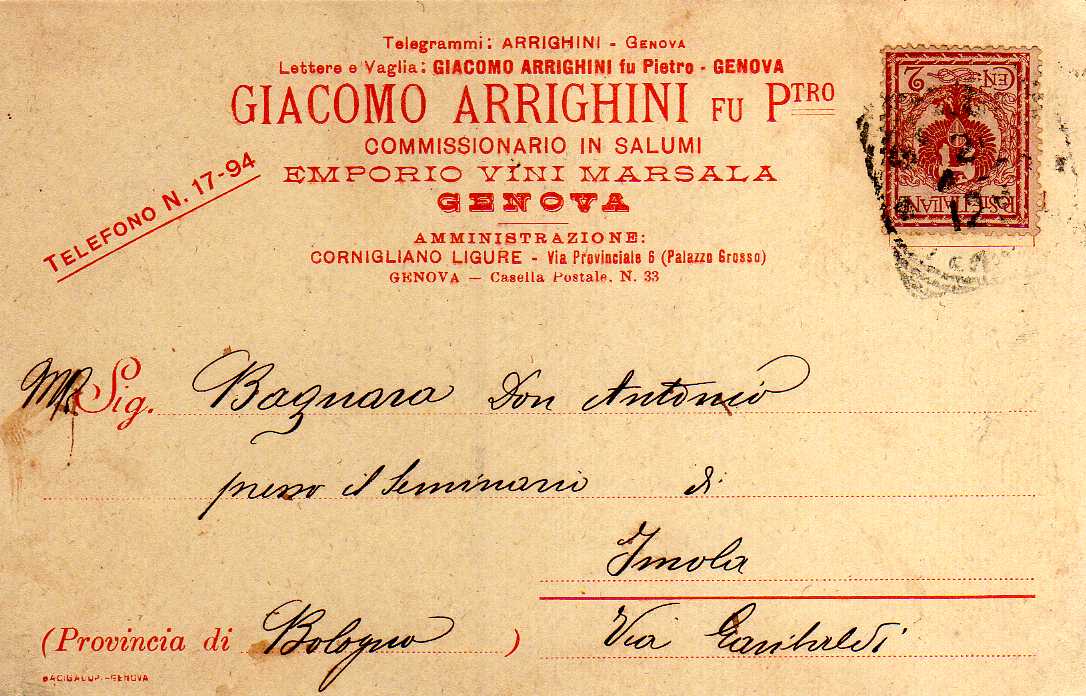 Telegrammi: ARRIGHINI - GENOVA
Lettere e Vaglia: GIACOMO ARRIGHINI fu Pietro - GENOVA
GIACOMO ARRIGHINI FU PTRO
COMMISSIONARIO IN SALUMI
EMPORIO VINI MARSALA
GENOVA
TELEFONO N. 17-94
AMMINISTRAZIONE:
CORNIGLIANO LIGURE - Via Provinciale 6 (Palazzo Grosso)
GENOVA — Casella Postale, N. 33
CEN 2
POSTE ITALIANE
2
12
MR Sig. Bagnara Don Antonio
presso il Seminario di
Imola
(Provincia di Bologna)
Via Garibaldi
BACIGALUPI-GENOVA